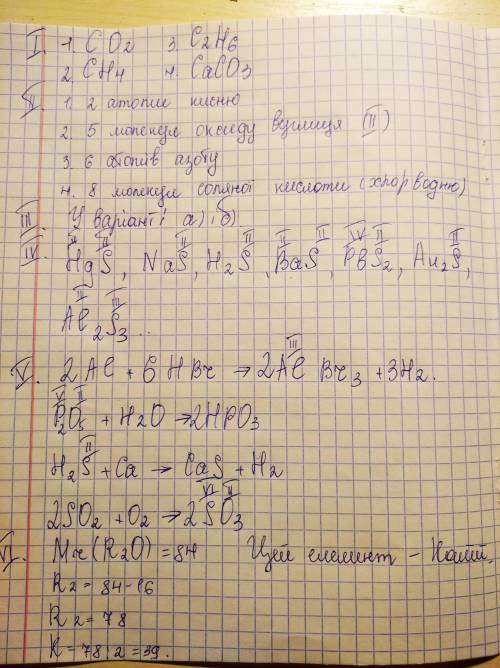 I. 1. CO2 3. C2H6
2. CH4 4. CaCO3
II. 1. 2 атоми кисню
2. 5 молекул оксиду вуглиця (II)
3. 6 атомів азоту
4. 8 молекул соляної кислоти (хлор водню)
III. У варіанті а), б)
IV. HgS, NaS, H2S, BaS, PBS2, Au2S,
Al2S3..
V. 2Al + 6HBr → 2AlBr3 + 3H2.
P2O5 + H2O → 2HPO3
H2S + Ca → CaS + H2
2SO2 + O2 → 2SO3
VI. Mr(R2O) = 84 Цей елемент - Калій.
R2 = 84-16
R2 = 78
R = 78 / 2 = 39.